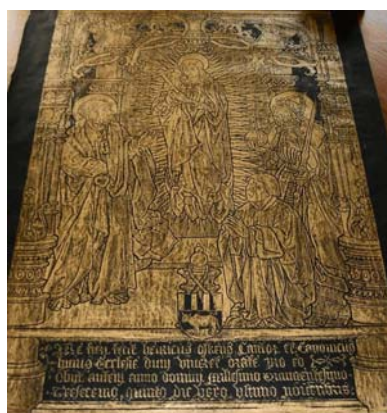 fieri fecit henricus oskens Cantor et Canonicus
huius Ecclesie dum viueret orate pro eo
Obijt autem anno domini millesimo quingentesimo
Tricesimo quinto die vero vltimo nouembris